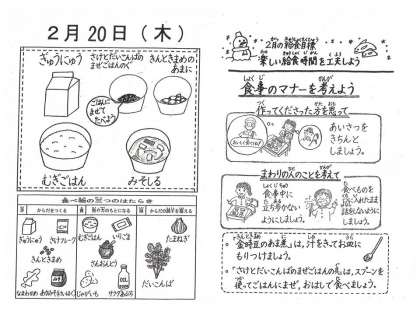 2月20日(木)
ぎゅうにゅう
さけとだいこんばの
まぜごはんのぐ
きんときまめの
あまに
ごはんに
まぜて
たべよう
むぎごはん
みそしる
食べ物の三つのはたらき
赤 からだをつくる
黄 熱や力のもとになる
緑 からだの調子を整える
ぎゅうにゅう
さけフレーク
きんときまめ
なまわかめ
むぎごはん
いりごま
さんおんとう
じゃがいも
サラダあぶら
たまねぎ
だいこんば
2月の給食目標
楽しい給食時間を工夫しよう
食事のマナーを考えよう
作ってくださった方を思って
あいさつを
きちんと
しましょう。
まわりの人のことを考えて
食事中に
立ち歩かない
ようにしましょう。
食べものを
口に入れたまま
話をしないように
しましょう。
「金時豆のあま煮」は、汁をきってお皿に
もりつけましょう。
「さけとだいこんばのまぜごはんの具」は、スプーンを
使ってごはんにまぜ、おはしで食べましょう。